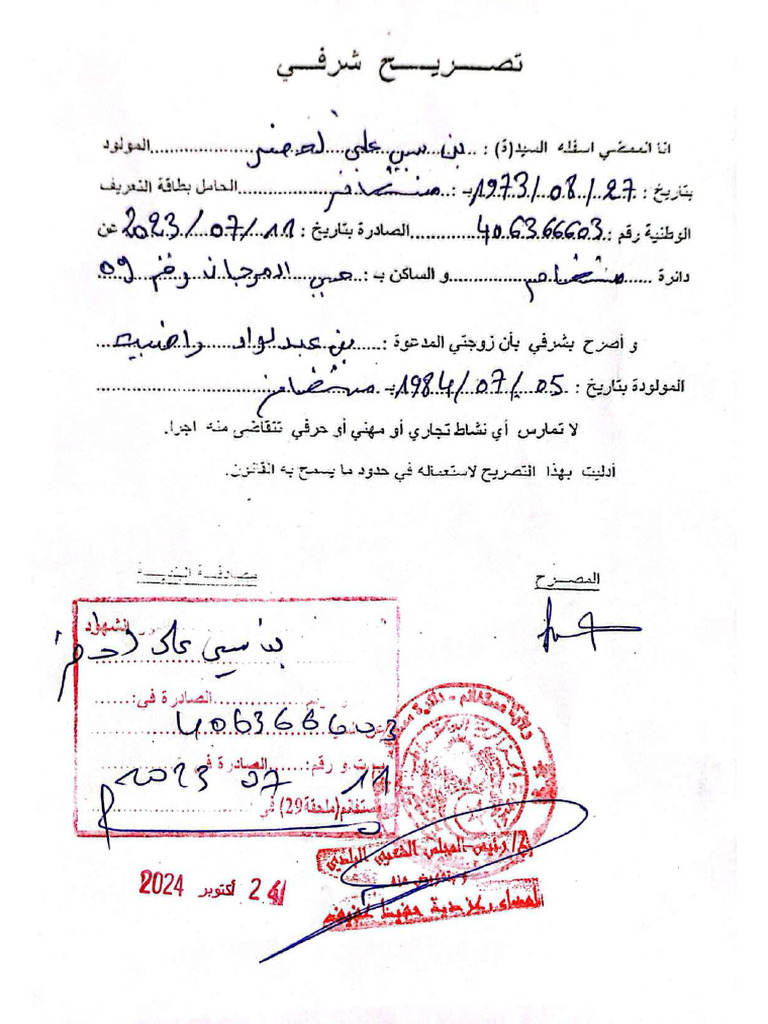 تصريح شرفي
انا الممضي اسفله السيد(ة) : بن سيي علي لخضر المولود
بتاريخ : 27/08/1973 بـ : مستغانم الحامل بطاقة التعريف
الوطنية رقم : 406366603 الصادرة بتاريخ : 11/07/2023 عن
دائرة مستغانم و الساكن بـ : حي المرجان رقم 09
و أصرح بشرفي بأن زوجتي المدعوة : بن عبدلواد راضية
المولودة بتاريخ : 05/07/1984 بـ مستغانم
لا تمارس أي نشاط تجاري أو مهني أو حرفي تتقاضى منه اجرا.
أدليت بهذا التصريح لاستعماله في حدود ما يسمح به القانون.
المصرح
مصادقة البلدية
بن سيي علي لخضر
الصادرة في:
406366603
و رقم: الصادرة في
2023 07 11
مستغانم(ملحقة29) في
ولاية مستغانم - دائرة
ع/ رئيس المجلس الشعبي البلدي
و بتفويض منه
24 أكتوبر 2024